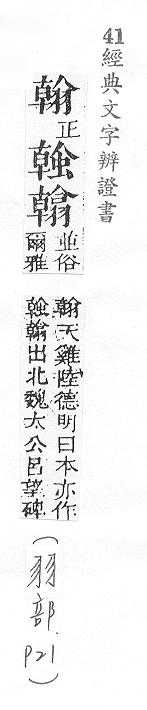 41經典文字辨證書
翰正
螒
並俗
爾雅
翰天雞陸德明曰本亦作
螒出北魏太公呂望碑
(羽部 P21)